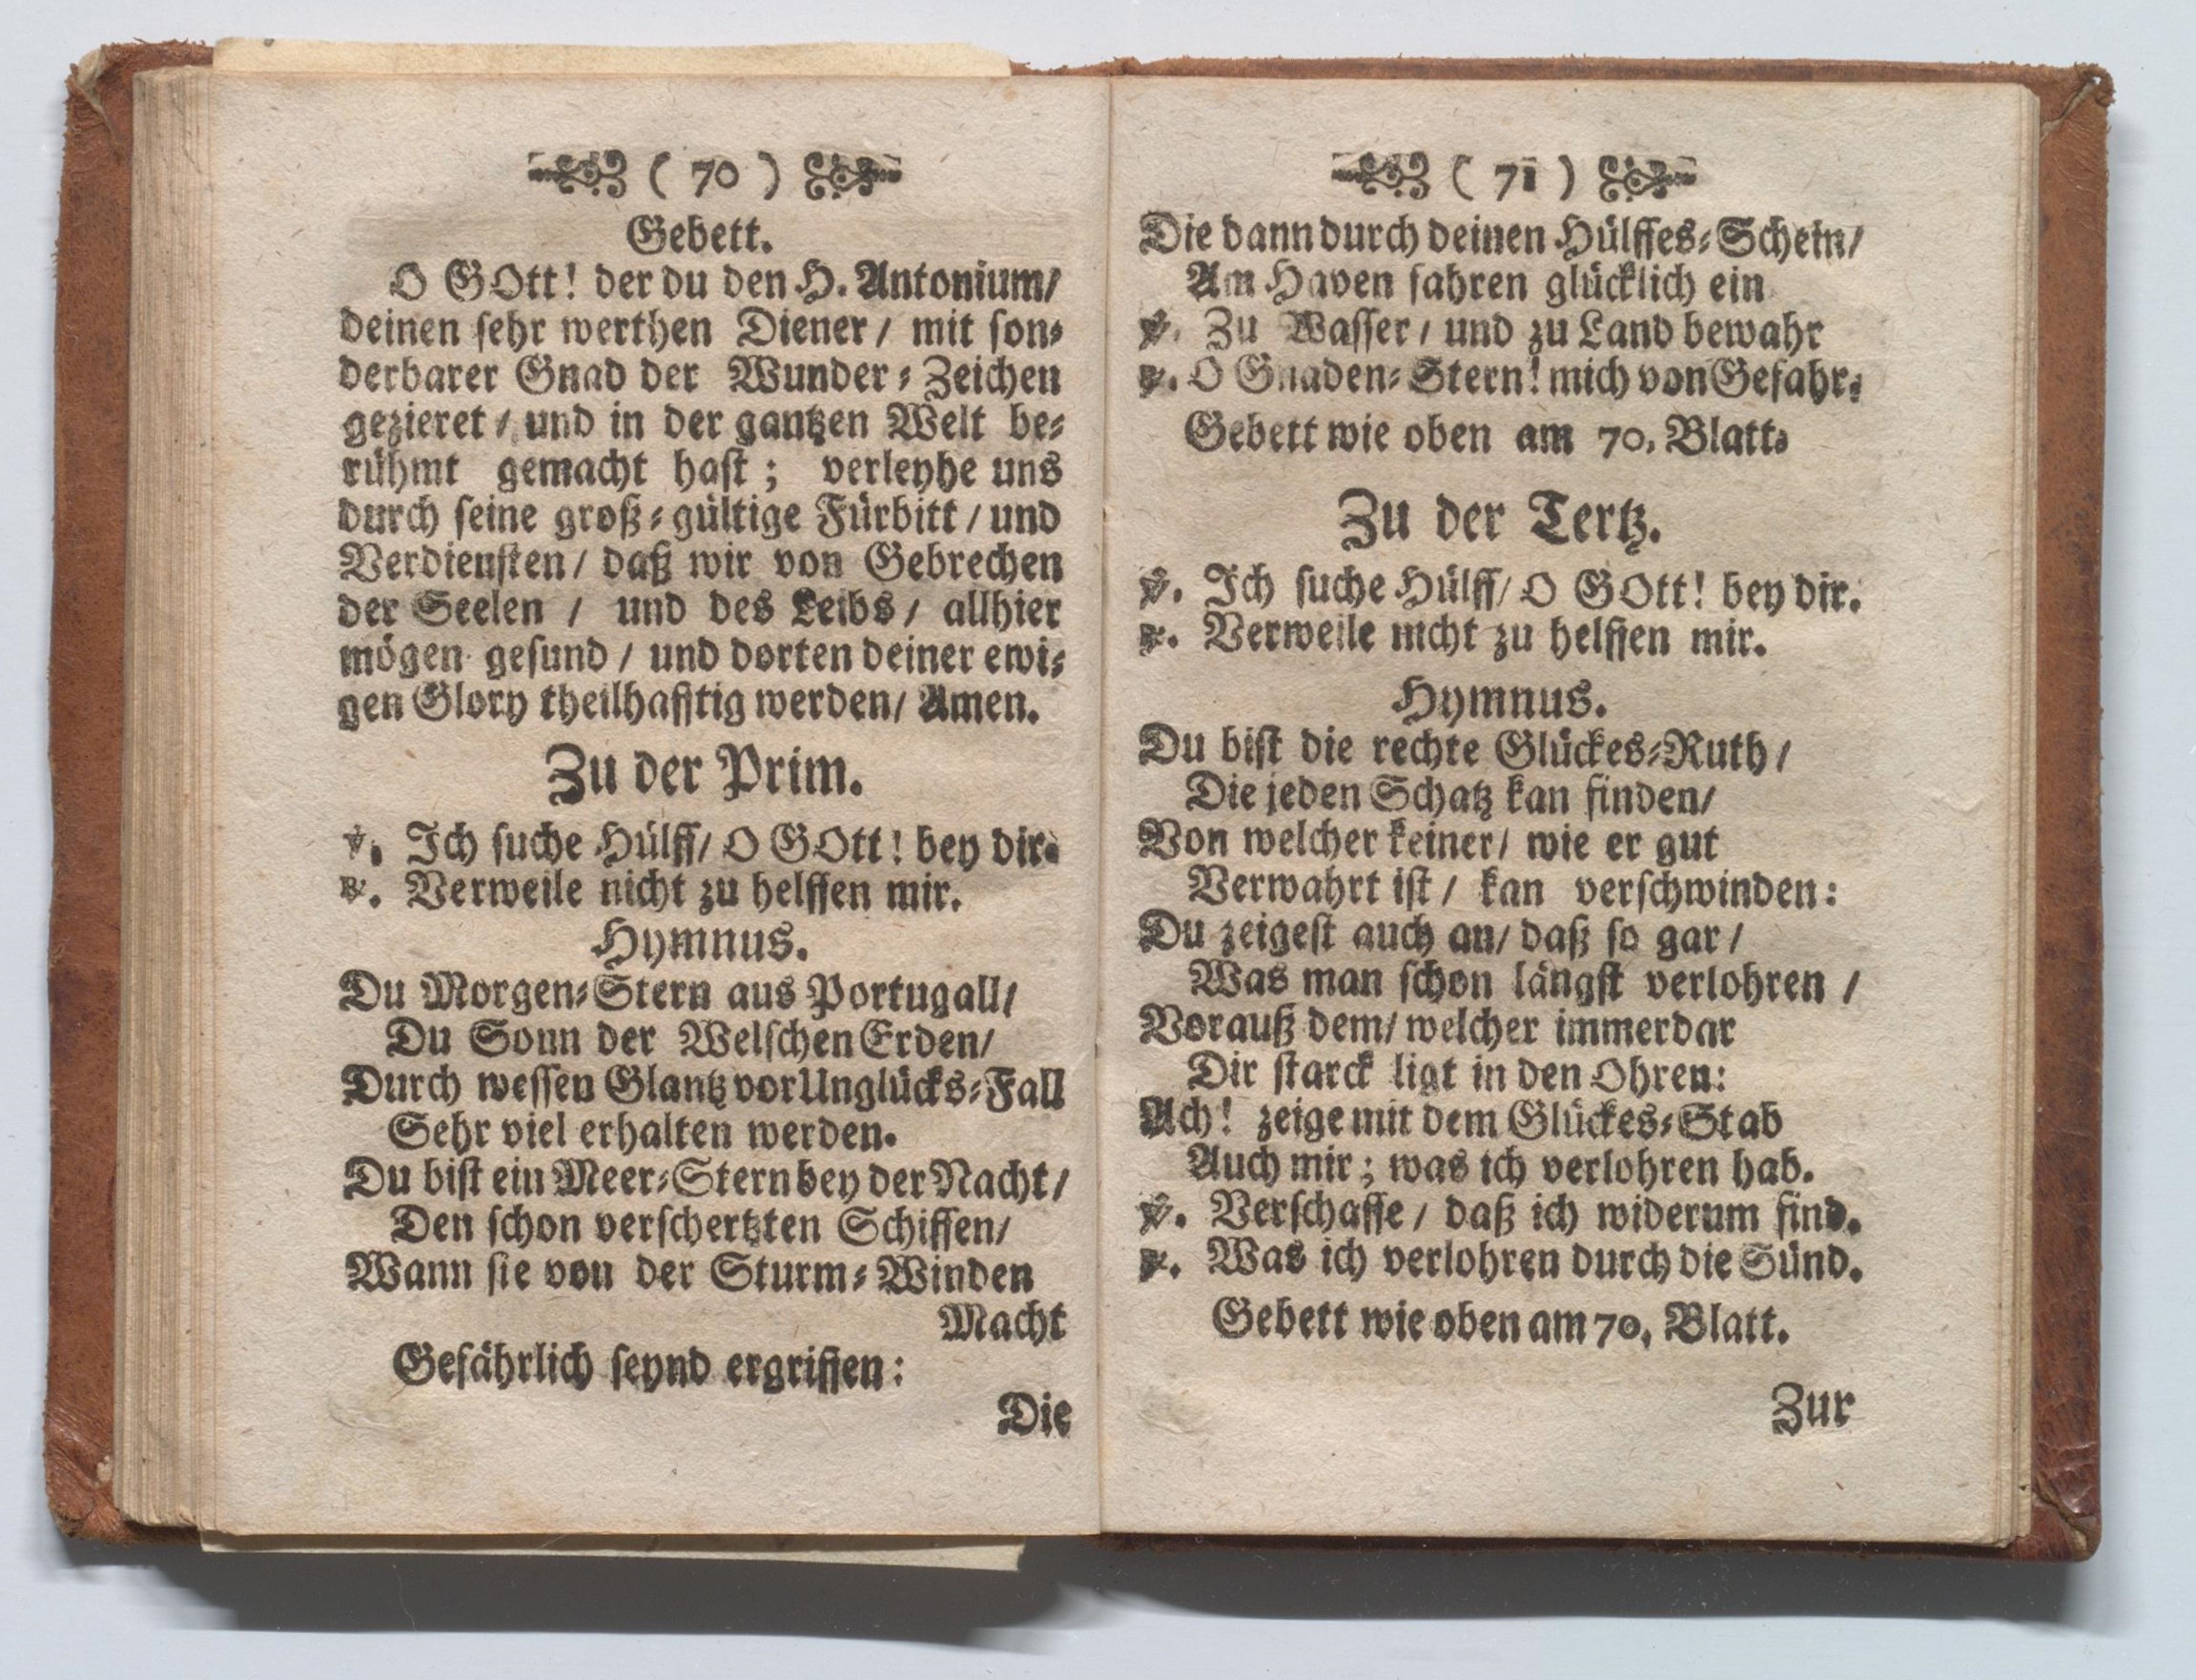 ( 70 )
Gebett.
O GOtt! der du den H. Antonium/
deinen sehr werthen Diener / mit son⸗
derbarer Gnad der Wunder⸗Zeichen
gezieret / und in der gantzen Welt be⸗
rühmt gemacht hast ; verleyhe uns
durch seine groß⸗gültige Fürbitt / und
Verdiensten / daß wir von Gebrechen
der Seelen / und des Leibs / allhier
mögen gesund / und dorten deiner ewi⸗
gen Glory theilhafftig werden/ Amen.
Zu der Prim.
℣. Ich suche Hülff/ O GOtt! bey dir.
℟. Verweile nicht zu helffen mir.
Hymnus.
Du Morgen⸗Stern aus Portugall/
Du Sonn der Welschen Erden/
Durch wessen Glantz vor Unglücks⸗Fall
Sehr viel erhalten werden.
Du bist ein Meer⸗Stern bey der Nacht/
Den schon verschertzten Schiffen/
Wann sie von der Sturm⸗Winden
Macht
Gefährlich seynd ergriffen:
Die
( 71 )
Die dann durch deinen Hülffes⸗Schein/
Am Haven fahren glücklich ein
℣. Zu Wasser / und zu Land bewahr
℟. O Gnaden⸗Stern! mich von Gefahr.
Gebett wie oben am 70. Blatt.
Zu der Tertz.
℣. Ich suche Hülff/ O GOtt! bey dir.
℟. Verweile nicht zu helffen mir.
Hymnus.
Du bist die rechte Glückes⸗Ruth /
Die jeden Schatz kan finden/
Von welcher keiner/ wie er gut
Verwahrt ist / kan verschwinden:
Du zeigest auch an/ daß so gar /
Was man schon längst verlohren /
Vorauß dem/ welcher immerdar
Dir starck ligt in den Ohren:
Ach! zeige mit dem Glückes⸗Stab
Auch mir ; was ich verlohren hab.
℣. Verschaffe / daß ich widerum find.
℟. Was ich verlohren durch die Sünd.
Gebett wie oben am 70. Blatt.
Zur